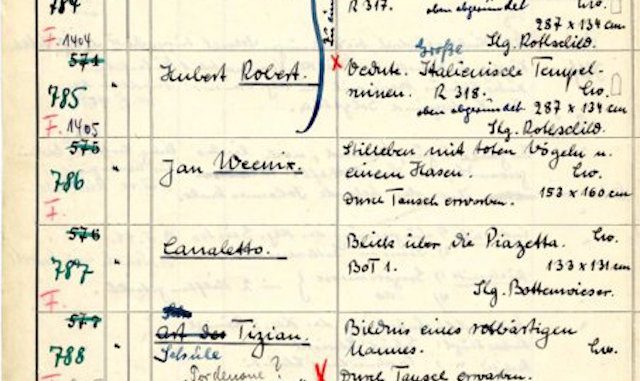 784
R 317. oben abgerundet Lw.
287 x 134 cm
F. 1404
Slg. Rothschild.
574
Große
785 " Hubert Robert. x Vedute. Italienische Tempel-
ruinen. R 318. Lw.
oben abgerundet 287 x 134 cm
F. 1405
Slg. Rothschild.
575
786 " Jan Weenix. Stilleben mit toten Vögeln u.
einem Hasen. Lw.
F.
Durch Tausch erworben. 153 x 160 cm
576
787 " Canaletto. Blick über die Piazetta. Lw.
BoT 1. 133 x 131 cm
F.
Slg. Bottenwieser.
577
788 " Art des Tizian. Bildnis eines rotbärtigen
Schule
Mannes. Lw.
Pordenone? x Durch Tausch erworben.